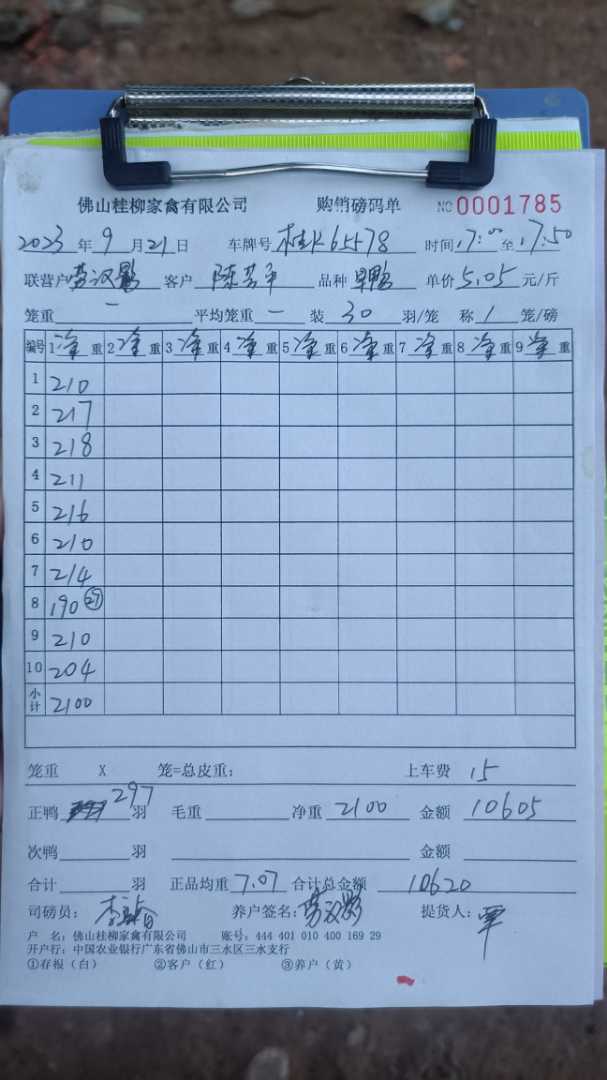 佛山桂柳家禽有限公司 购销磅码单 NO 0001785
2023年9月21日 车牌号 桂K65578 时间17:00至17:50
联营户 劳汉影 客户 陈 平 品种 旱鸭 单价5.05元/斤
笼重 一 平均笼重 一 装 30 羽/笼 称 1 笼/磅
编号 1净重 2净重 3净重 4净重 5净重 6净重 7净重 8净重 9净重
1 210
2 217
3 218
4 211
5 216
6 210
7 214
8 190 27
9 210
10 204
小计 2100
笼重 X 笼=总皮重: 上车费 15
正鸭 297 羽 毛重 净重 2100 金额 10605
次鸭 羽 金额
合计 羽 正品均重 7.07 合计总金额 10620
司磅员: 李 养户签名: 劳汉影 提货人: 覃
户 名: 佛山桂柳家禽有限公司 账号: 444 401 010 400 169 29
开户行: 中国农业银行广东省佛山市三水区三水支行
①存根（白） ②客户（红） ③养户（黄）